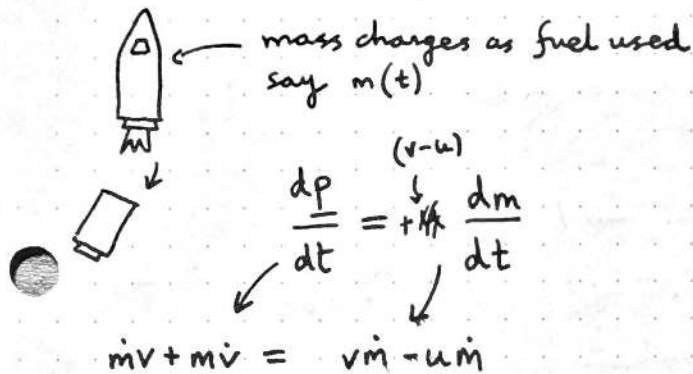 mass changes as fuel used
say m(t)
(v-u)
dp/dt = + dm/dt
ṁv + mv̇ = vṁ - uṁ